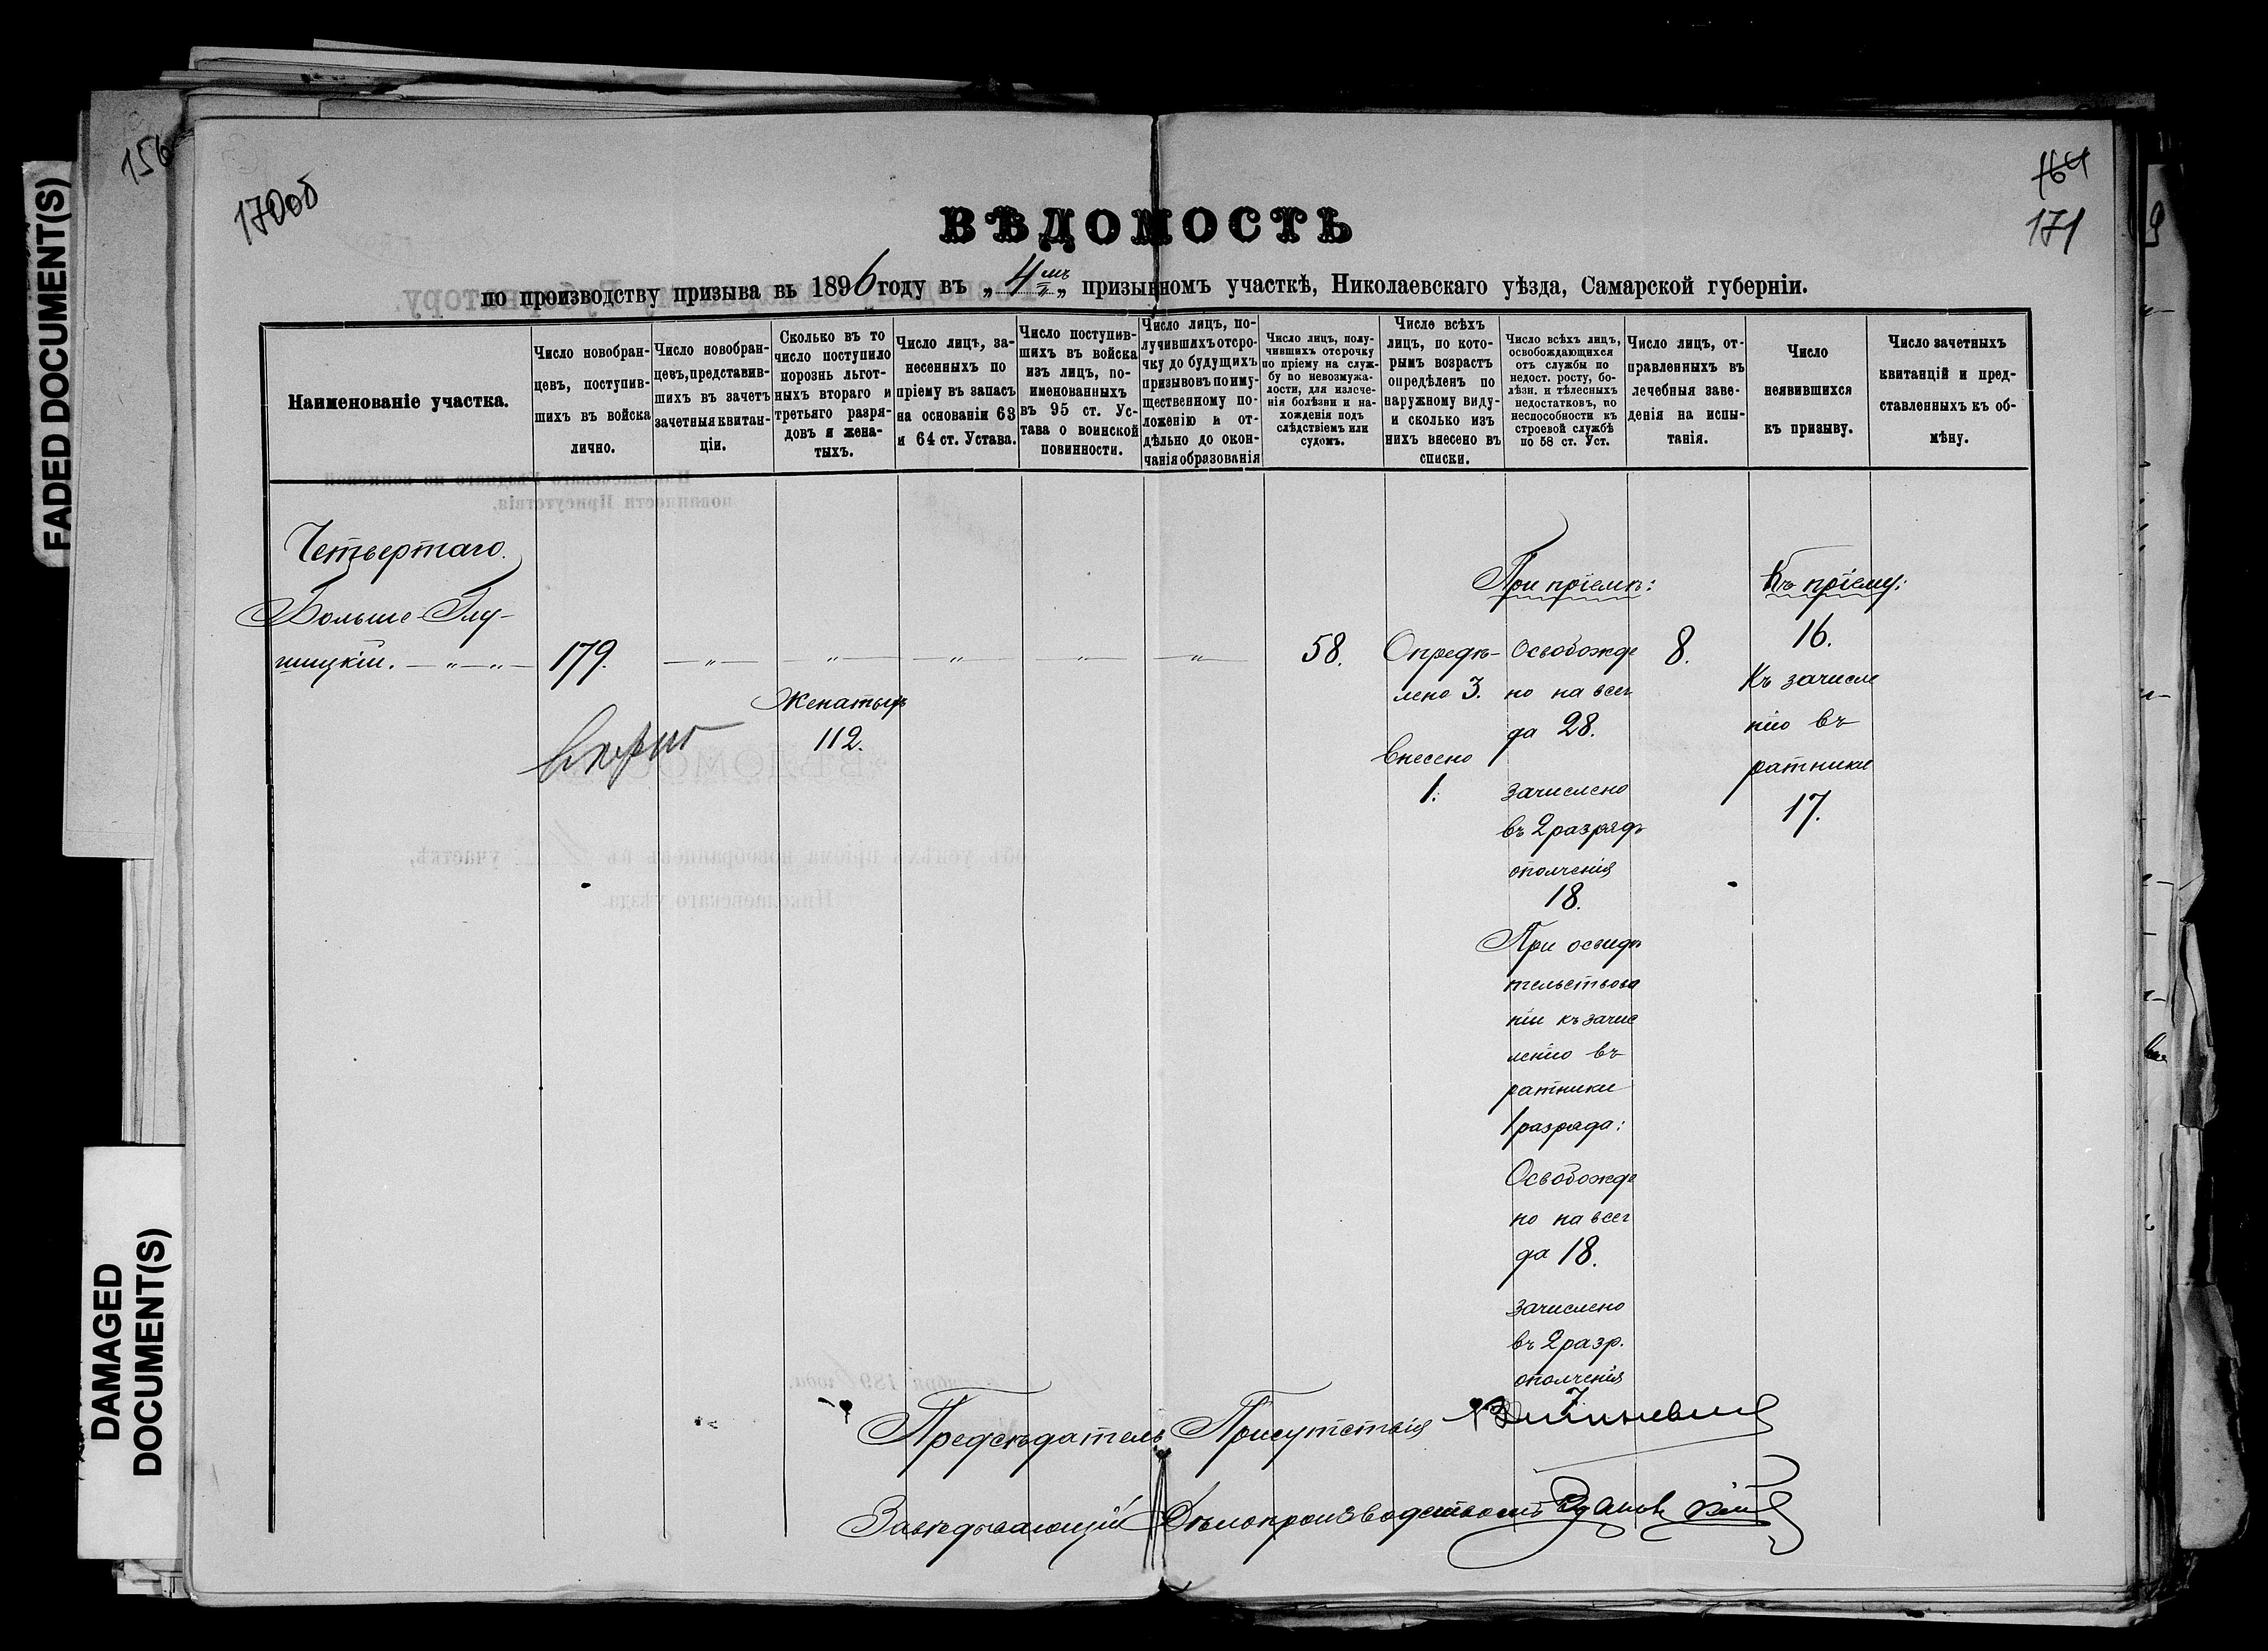 FADED DOCUMENT(S)
DAMAGED
DOCUMENT(S)
156
170об
164
171
ВѢДОМОСТЬ
по производству призыва въ 1896 году въ „4мъ„ призывномъ участкѣ, Николаевскаго уѣзда, Самарской губерніи.
Наименованіе участка.
Число новобран-
цевъ, поступив-
шихъ въ войска
лично.
Число новобран-
цевъ, представив-
шихъ въ зачетъ
зачетныя квитан-
ціи.
Сколько въ то
число поступило
порознь льгот-
ныхъ втораго и
третьяго разря-
довъ и жена-
тыхъ.
Число лицъ, за-
несенныхъ по
пріему въ запасъ
на основаніи 63
и 64 ст. Устава.
Число поступив-
шихъ въ войска
изъ лицъ, по-
именованныхъ
въ 95 ст. Ус-
тава о воинской
повинности.
Число лицъ, по-
лучившихъ отсро-
чку до будущихъ
призывовъ по иму-
щественному по-
ложенію и от-
дѣльно до окон-
чанія образованія
Число лицъ, полу-
чившихъ отсрочку
по пріему на служ-
бу по невозмужа-
лости, для излече-
нія болѣзни и на-
хожденія подъ
слѣдствіемъ или
судомъ.
Число всѣхъ
лицъ, по кото-
рымъ возрастъ
опредѣленъ по
наружному виду-
и сколько изъ
нихъ внесено въ
списки.
Число всѣхъ лицъ,
освобождающихся
отъ службы по
недост. росту, бо-
лѣзн. и тѣлесныхъ
недостатковъ, по
неспособности къ
строевой службѣ
по 58 ст. Уст.
Число лицъ, от-
правленныхъ въ
лечебныя заве-
денія на испы-
танія.
Число
неявившихся
къ призыву.
Число зачетныхъ
квитанцій и пред-
ставленныхъ къ об-
мѣну.
Четвертаго
Больше-Глу-
шицкій. — „ — „ —
179.
— „ —
— „ —
Женатыхъ
112.
— „ —
— „ —
— „ —
58.
Опредѣ-
лено 3.
Внесено
1.
При пріемѣ:
Освобожде
но на всег
да 28.
Зачислено
въ 2 разрядъ
ополченія
18.
При освидѣ
тельствова
ніи къ зачис
ленію въ
ратники
1 разряда:
Освобожде
но на всег
да 18.
Зачислено
въ 2 разр.
ополченія
7.
8.
Къ пріему:
16.
Къ зачисле
нію въ
ратники
17.
Предсѣдатель Присутствія
Завѣдывающій Дѣлопроизводствомъ